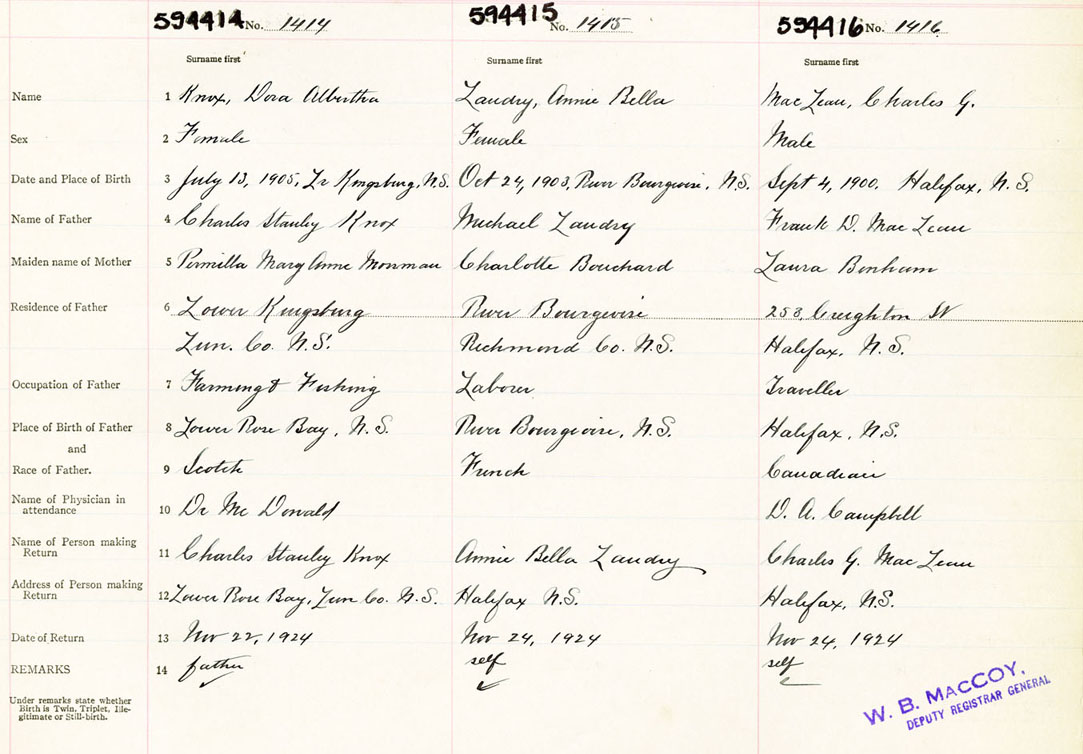 594414 No. 1414 594415 No. 1415 594416 No. 1416
Surname first Surname first Surname first
Name 1 Knox, Dora Albertha Landry, Annie Bella MacLean, Charles G.
Sex 2 Female Female Male
Date and Place of Birth 3 July 13, 1905, Lr Kingsburg, N.S. Oct 24, 1903, River Bourgeoise, N.S. Sept 4, 1900. Halifax, N.S.
Name of Father 4 Charles Stanley Knox Michael Landry Frank D. MacLean
Maiden name of Mother 5 Permilla Mary Anne Mosman Charlotte Bouchard Laura Bonham
Residence of Father 6 Lower Kingsburg River Bourgeoise 253, Creighton St
Lun. Co. N.S. Richmond Co. N.S. Halifax, N.S.
Occupation of Father 7 Farming & Fishing Laborer Traveller
Place of Birth of Father 8 Lower Rose Bay, N.S. River Bourgeoise, N.S. Halifax, N.S.
and
Race of Father. 9 Scotch French Canadian
Name of Physician in
attendance 10 Dr Mc Donald D. A. Campbell
Name of Person making
Return 11 Charles Stanley Knox Annie Bella Landry Charles G. MacLean
Address of Person making
Return 12 Lower Rose Bay, Lun Co. N.S. Halifax N.S. Halifax, N.S.
Date of Return 13 Nov 22, 1924 Nov 24, 1924 Nov 24, 1924
REMARKS 14 father self self
Under remarks state whether
Birth is Twin, Triplet, Ille-
gitimate or Still-birth.
W. B. MACCOY,
DEPUTY REGISTRAR GENERAL